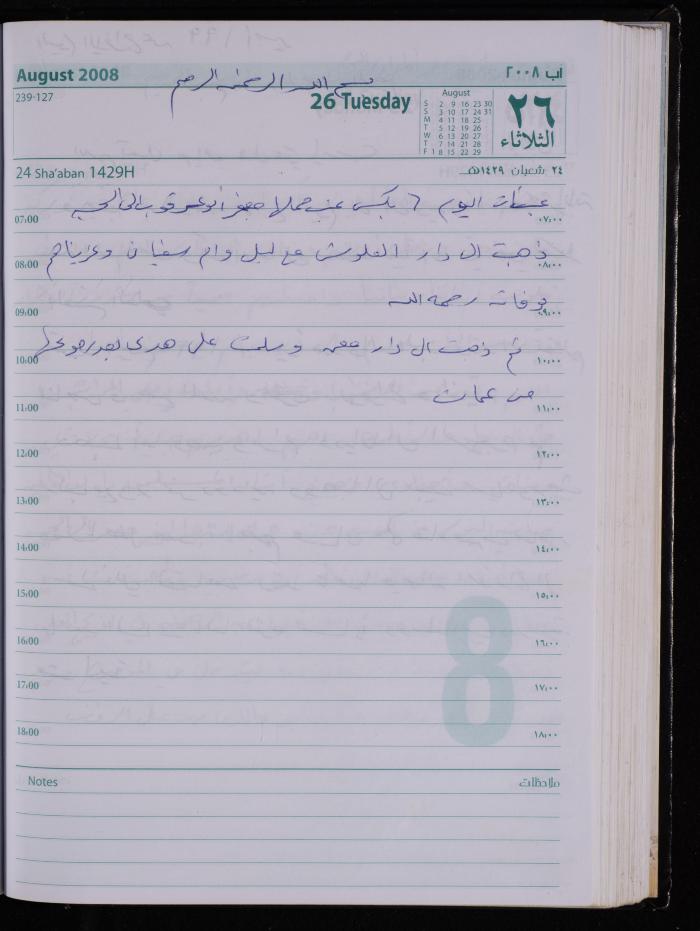 August 2008
آب ٢٠٠٨
بسم الله الرحمن الرحيم
239-127
26 Tuesday
August
S 2 9 16 23 30
S 3 10 17 24 31
M 4 11 18 25
T 5 12 19 26
W 6 13 20 27
T 7 14 21 28
F 1 8 15 22 29
٢٦
الثلاثاء
24 Sha'aban 1429H
٢٤ شعبان ١٤٢٩هـ
عبئات اليوم ٦ بكس عنب حملها أبو عرقوب الى
07:00 ٠٧:٠٠
ذهبت الى دار الفلوش مع ليل وام سفيان وعزيناهم
08:00 ٠٨:٠٠
بوفاته رحمه الله
09:00 ٠٩:٠٠
ثم ذهبت الى دار وسلمت على هدى بعد رجوعها
10:00 ١٠:٠٠
من عمان
11:00 ١١:٠٠
12:00 ١٢:٠٠
13:00 ١٣:٠٠
14:00 ١٤:٠٠
15:00 ١٥:٠٠
16:00 ١٦:٠٠
17:00 ١٧:٠٠
18:00 ١٨:٠٠
8
Notes
ملاحظات